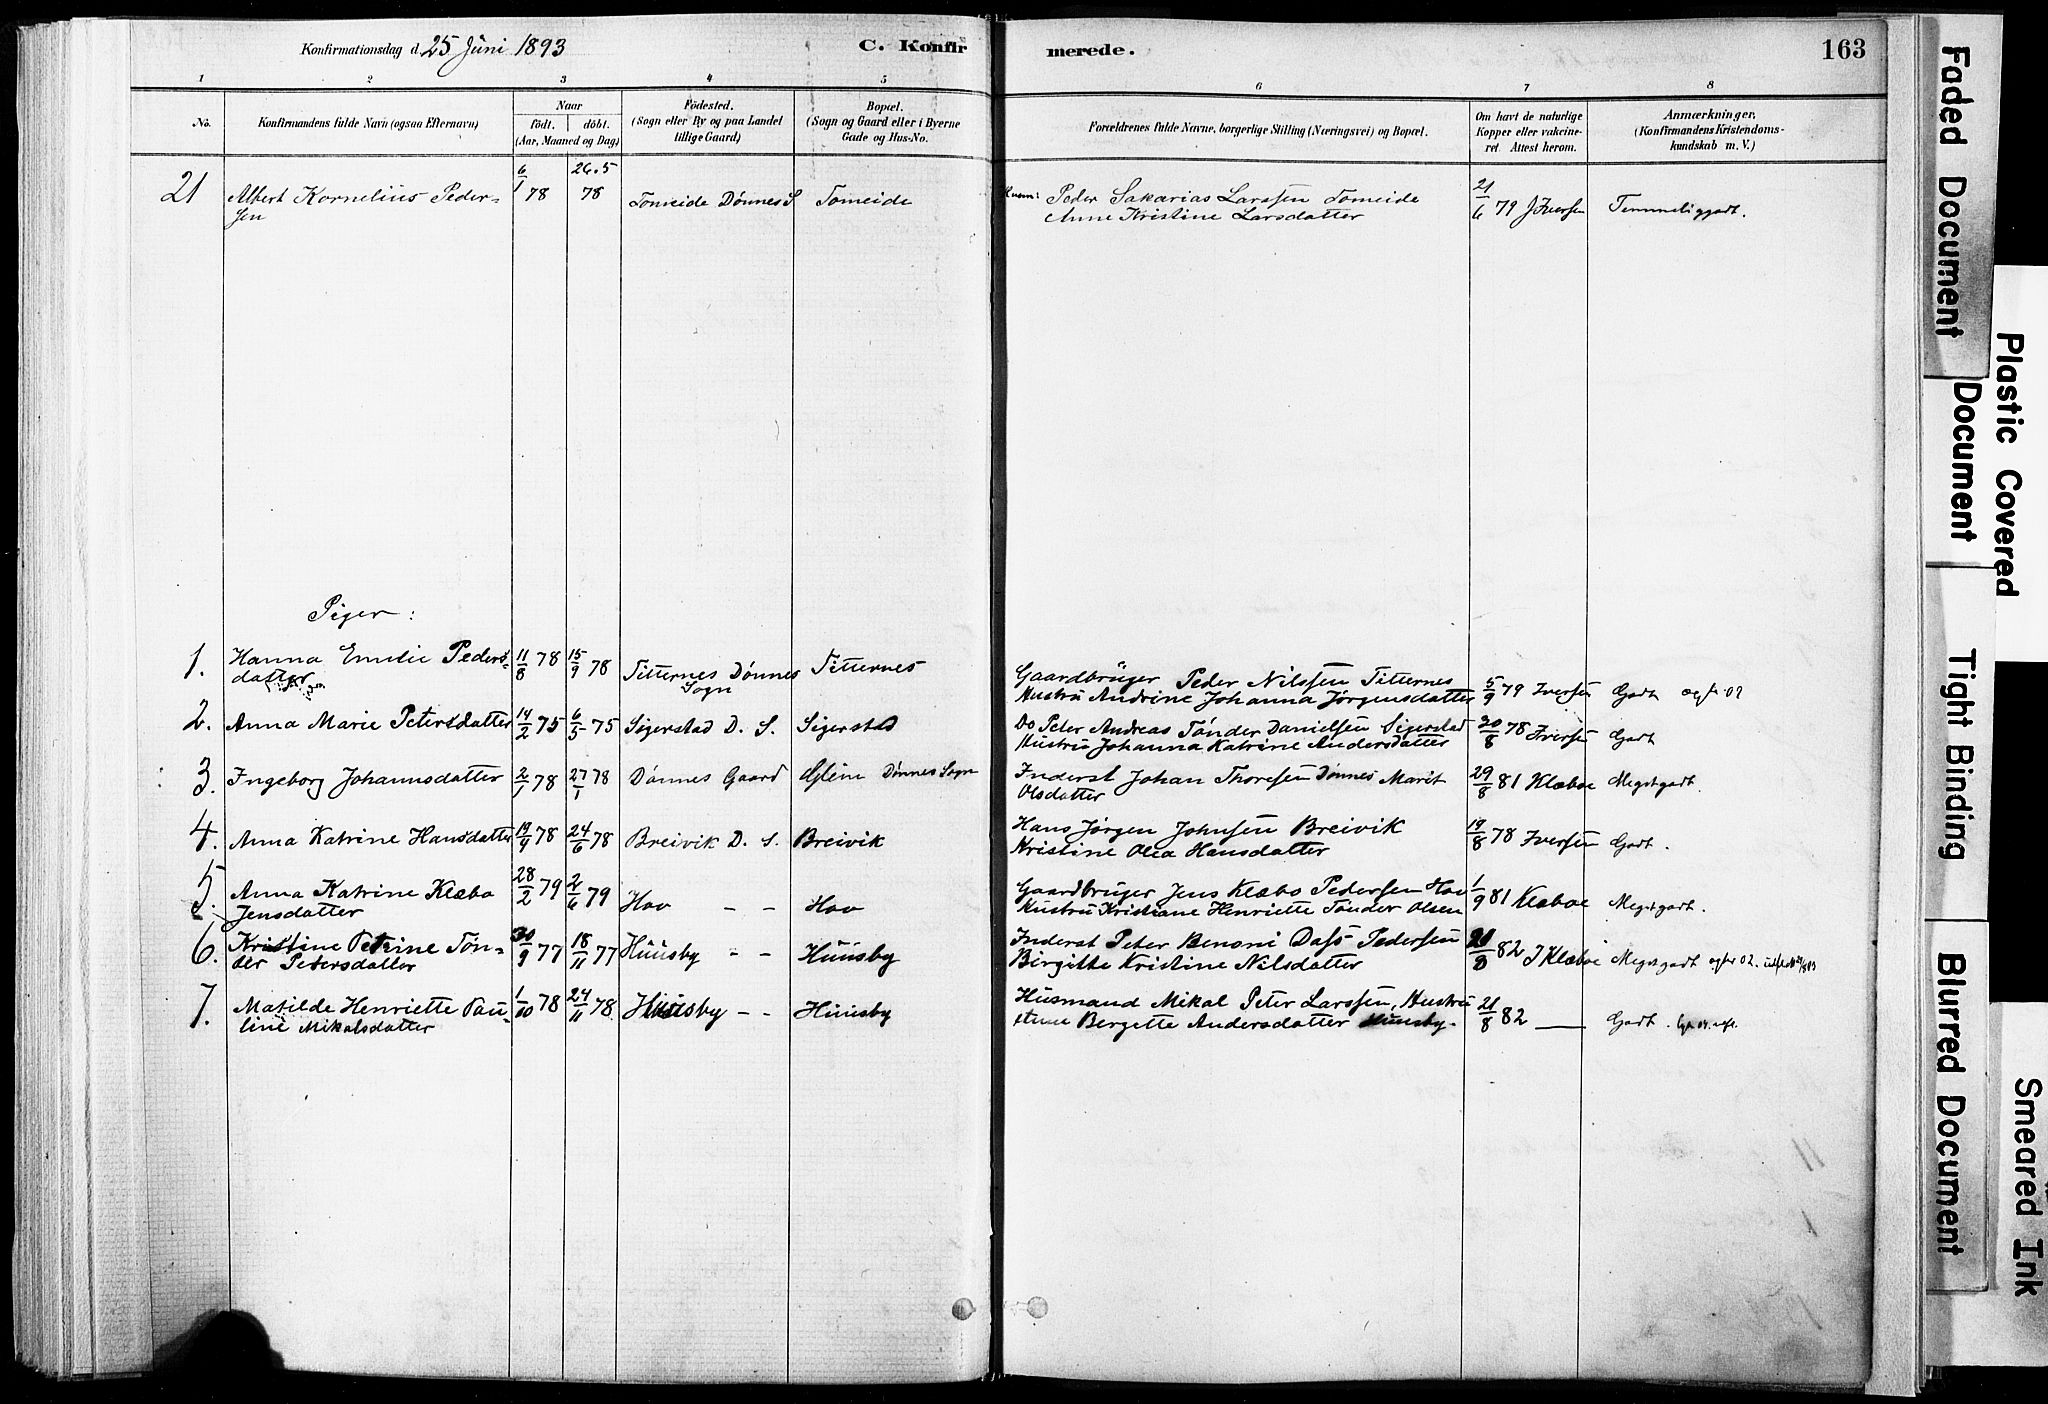 Konfirmationsdag d. 25 Juni 1893
C. Konfirmerede.
163
1 2 3 4 5 6 7 8
No.
Konfirmandens fulde Navn (ogsaa Efternavn)
Naar
født. døbt.
(Aar, Maaned og Dag)
Fødested.
(Sogn eller By og paa Landet
tillige Gaard)
Bopæl.
(Sogn og Gaard eller i Byerne
Gade og Hus-No.
Forældrenes fulde Navne, borgerlige Stilling (Næringsvei) og Bopæl.
Om havt de naturlige
Kopper eller vakcine-
ret. Attest herom.
Anmærkninger.
(Konfirmandens Kristendoms-
kundskab m. V.)
21 Albert Kornelius Peder- 6/1 78 26.5 78 Tomeide Dønnes S Tomeide Peder Sakarias Larssen Tomeide 21/6 79 J Iversen Temmelig godt.
sen Anne Kristine Larsdatter
Piger:
1. Hanna Emilie Peders- 11/8 78 15/9 78 Titternes Dønnes Titternes Gaardbrüger Peder Nilssen Titternes 5/9 79 Iversen Godt
datter Sogn Hustru Andrine Johanna Jørgensdatter
2. Anna Marie Petersdatter 14/2 75 6/5 75 Sigerstad D. S. Sigerstad Do Peter Andreas Tønder Danielsen Sigerstad 20/8 78 Iversen Godt
Hustru Johanna Katrine Andersdatter
3. Ingeborg Johannsdatter 2/1 78 27/1 78 Dønnes Gaard Glein Dønnes Sogn Inderst Johan Thoresen Dønnes Marit 29/8 81 Klæboe Meget godt.
Olsdatter
4. Anna Katrine Hansdatter 19/4 78 24/6 78 Breivik D. S. Breivik Hans Jørgen Johnsen Breivik 19/8 78 Iversen Godt.
Kristine Olea Hansdatter
5. Anna Katrine Klæbo 28/2 79 2/6 79 Hov - - Hov Gaardbrüger Jens Klæbo Pedersen Hov 1/9 81 Klæboe Meget godt.
Jensdatter Hustru Kristiane Henriette Tønder Olsen
6. Kristine Petrine Tøn- 30/9 77 18/11 77 Húusby - - Húusby Inderst Peter Benoni Dass Pedersen 82 J Klæboe Meget godt
der Petersdatter Birgitte Kristine Nilsdatter
7. Matilde Henriette Pau- 1/10 78 24/11 78 Húusby - - Húusby Husmand Mikal Peter Larssen, Hustru 21/8 82 — Godt.
line Mikalsdatter Anne Bergette Andersdatter Huusby.
Faded Document
Plastic Covered
Document
Tight Binding
Blurred Document
Smeared Ink